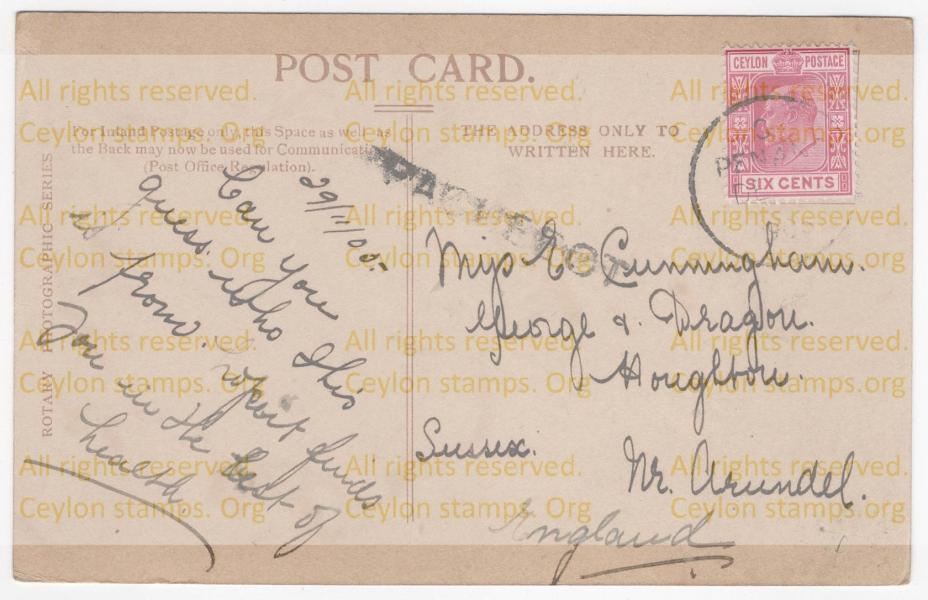 POST CARD.
For Inland Postage only, this Space as well as
the Back may now be used for Communication
(Post Office Regulation).
THE ADDRESS ONLY TO
WRITTEN HERE.
ROTARY PHOTOGRAPHIC SERIES
CEYLON POSTAGE
SIX CENTS
PENANG
PAQUEBOT
29/11/05
Can you
guess who this
is from. hopeing finds
You in the best of
health.
Miss E. Cunningham.
George & Dragon.
Houghton.
Sussex. Nr. Arundel.
England
All rights reserved. All rights reserved. All rights reserved.
Ceylon stamps. Org Ceylon stamps. Org Ceylon stamps. Org
All rights reserved. All rights reserved. All rights reserved.
Ceylon stamps. Org Ceylon stamps. Org Ceylon stamps. Org
All rights reserved. All rights reserved. All rights reserved.
Ceylon stamps. Org Ceylon stamps. Org Ceylon stamps. Org
All rights reserved. All rights reserved. All rights reserved.
Ceylon stamps. Org Ceylon stamps. Org Ceylon stamps. Org